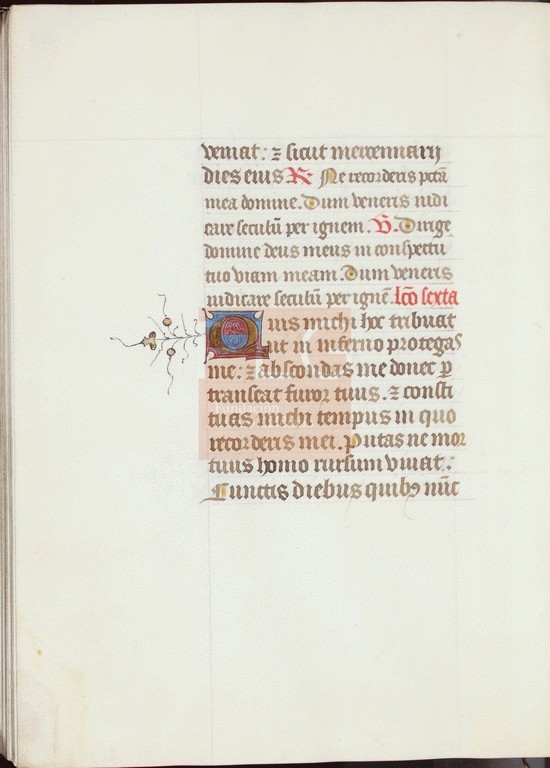 veniat: ⁊ sicut mercennarij
dies eius R̸ Ne recorderis pctā
mea domine. Dum veneris iudi
care seculū per ignem. V̸. Dirige
domine deus meus in conspectu
tuo viam meam. Dum veneris
iudicare seculū per ignē. lcō sexta
Quis michi hoc tribuat
ut in inferno protegas
me: ⁊ abscondas me donec p
transeat furor tuus. ⁊ consti
tuas michi tempus in quo
recorderis mei. Putas ne mor
tuus homo rursum vivat:
Cunctis diebus quibꝯ nūc
Fundación